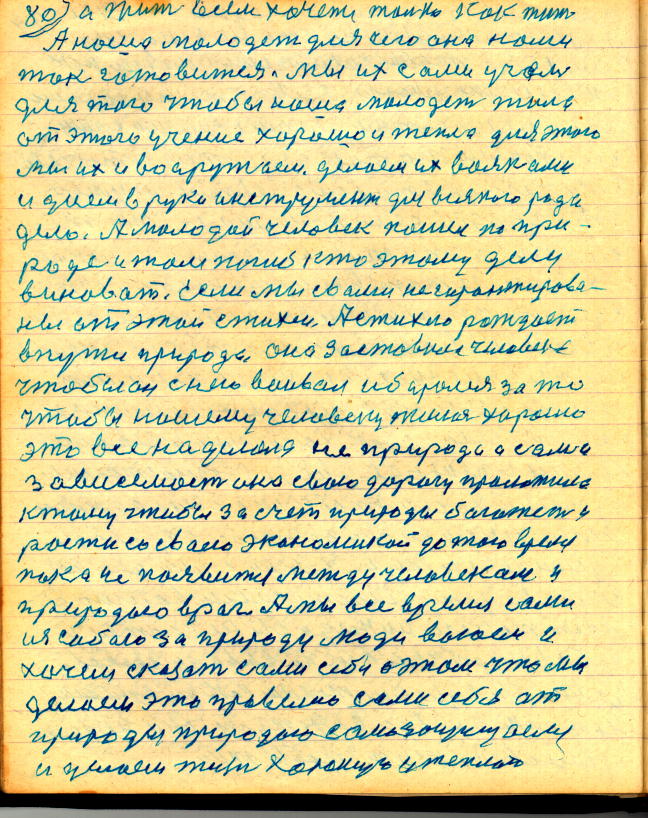 80) а жит всем хочети только как жит
А наша молодеж для чего она нами
так готовится. мы их сами учем
для того чтобы наша молодеж жила
от этого учение хорошо и тепла для этого
мы их и воаружаем. делаем их вояками
и даем в руки инструмент для всякого рода
дела. А молодой человек пошел по при-
роде и там погиб кто этому делу
виноват. если мы с вами не гарантирова-
ны от этой стихеи. А стихею рождает
внутри природа. она заставила человека
чтобы он с нею воивал и боролся за то
чтобы нашему человеку жилося хорошо
это все наделала не природа а сама
зависемост она свою дорогу проложила
к тому чтобы за счет природы богатет и
рости со своею экономикой до того время
пока не появится между человекам и
природаю враг. А мы все время сами
собою за природу люди воюем и
хочем сказат сами себе о этом что мы
делаем это правелно сами себя от
природы природаю самозащищаем
и делаем жизн хорошую и теплою